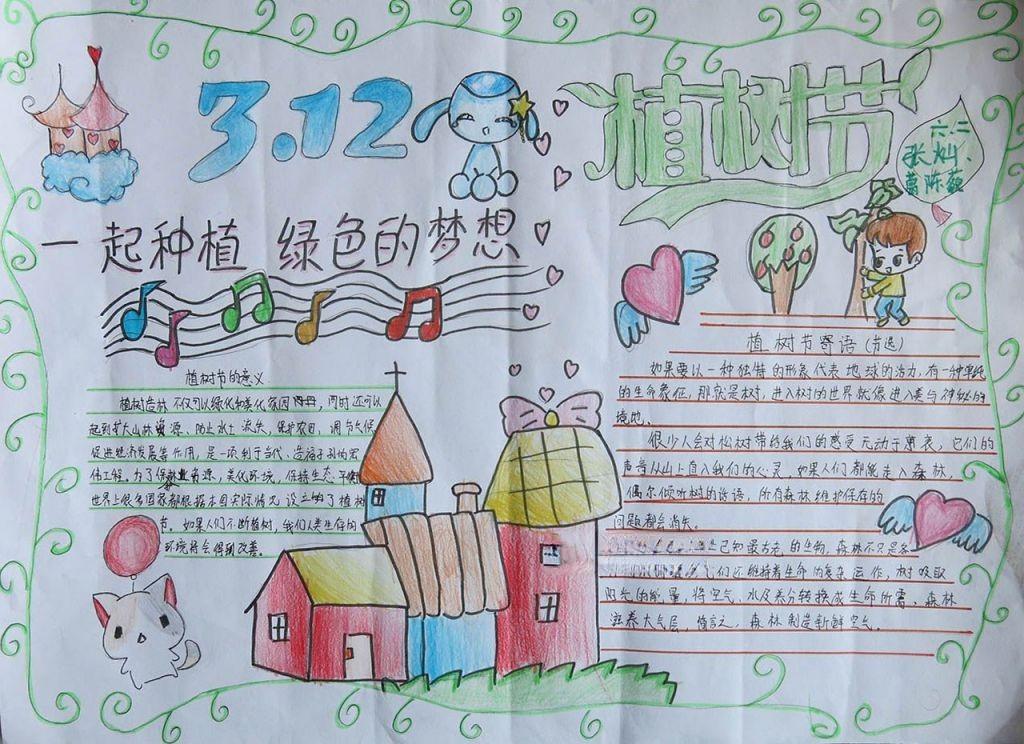 3.12
植树节
六.二
张灿、
葛陈薇
一起种植 绿色的梦想
植树节的意义
植树造林不仅可以绿化和美化家园,同时还可以
起到扩大山林资源、防止水土流失、保护农田、调节气候
促进经济发展等作用,是一项利于当代、造福子孙的宏
伟工程。为了保护林业资源,美化环境,保持生态平衡
世界上很多国家都根据本国实际情况设立了植树
节。如果人们不断植树,我们人类生存的
环境将会得到改善。
植树节寄语(节选)
如果要以一种独特的形象代表地球的活力,有一种单纯
的生命象征,那就是树,进入树的世界就像进入美与神秘的
境地。
很少人会对松树带给我们的感受无动于衷,它们的
声音从山上直入我们的心灵。如果人们都能走入森林,
偶尔倾听树的诉语,所有森林维护保存的
问题都会消失。
已知最古老的生物,森林不只是
们还维持着生命的复杂运作,树吸取
阳光的能量,将空气、水及养分转换成生命所需、森林
滋养大气层,简言之,森林制造新鲜空气。